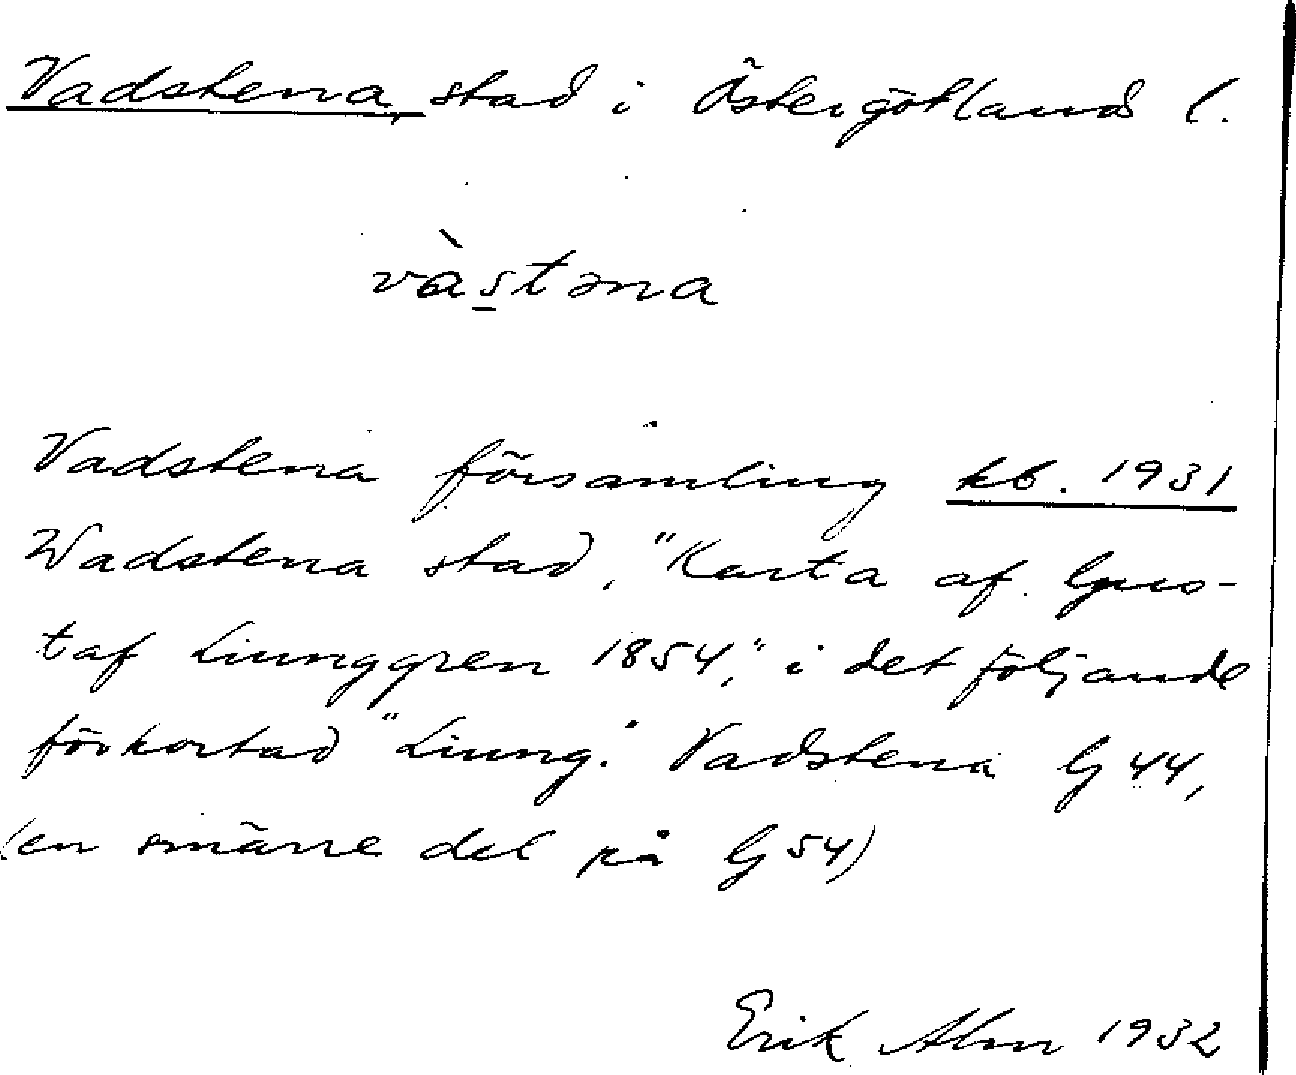 Vadstena, stad i Östergötland l.
vàstəna
Vadstena församling kb. 1931
Wadstena stad, "Karta af Gus-
taf Liunggren 1854," i det följande
förkortad "Liung." Vadstena G 44,
(en smärre del på G 54)
Erik Alm 1932